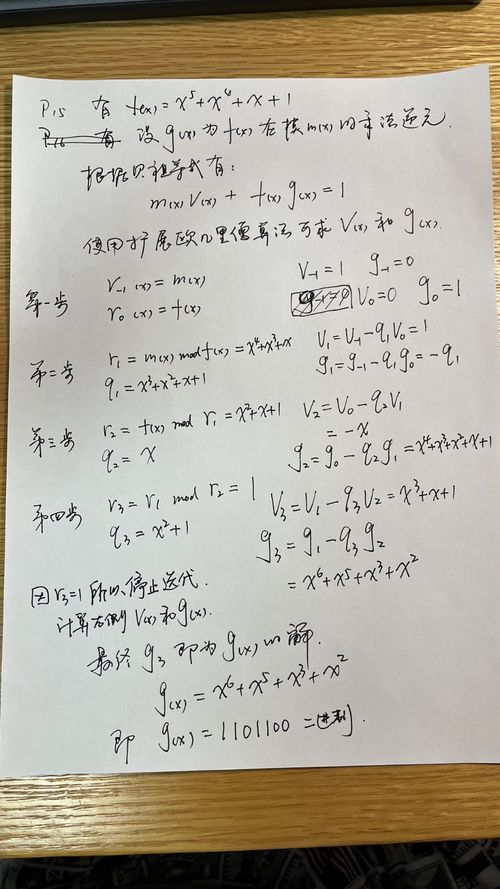 P15 有 f(x) = x⁵+x⁴+x+1
设 g(x) 为 f(x) 在模 m(x) 的乘法逆元.
根据贝祖等式有:
m(x)V(x) + f(x)g(x) = 1
使用扩展欧几里德算法可求 V(x) 和 g(x).
第一步 r₋₁(x) = m(x) V₋₁ = 1 g₋₁ = 0
r₀(x) = f(x) V₀=0 g₀ = 1
第二步 r₁ = m(x) mod f(x) = x⁴+x³+x V₁ = V₋₁ - q₁V₀ = 1
q₁ = x³+x²+x+1 g₁ = g₋₁ - q₁g₀ = -q₁
第三步 r₂ = f(x) mod r₁ = x²+x+1 V₂ = V₀ - q₂V₁
= -x
q₂ = x g₂ = g₀ - q₂g₁ = x⁴+x³+x²+x+1
第四步 r₃ = r₁ mod r₂ = 1 V₃ = V₁ - q₃V₂ = x³+x+1
q₃ = x²+1 g₃ = g₁ - q₃g₂
= x⁶+x⁵+x³+x²
因 r₃=1 所以停止迭代.
计算右侧 V(x) 和 g(x).
最终 g₃ 即为 g(x) 的解.
g(x) = x⁶+x⁵+x³+x²
即 g(x) = 1101100 二进制.